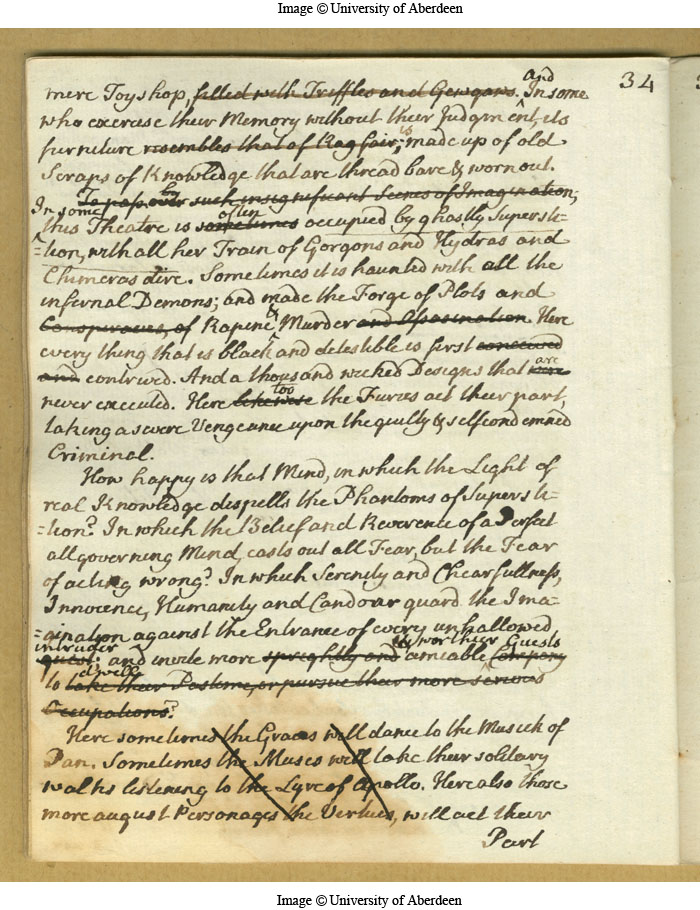 Image © University of Aberdeen
34
and
mere Toyshop, filled with Triffles and Gewgaws. In some
who exercise their Memory without their Judgment, its
is
furniture resembles that of Rag fair, made up of old
Scraps of Knowledge that are thread bare & worn out.
To pass over such insignificant Scenes of Imagination;
In some by often
this Theatre is sometimes occupied by ghastly Supersti-
=tion, with all her Train of Gorgons and Hydras and
Chimeras dire. Sometimes it is haunted with all the
infernal Demons; and made the Forge of Plots and
&
Conspiracies, of Rapine, Murder and Assassination. Here
every thing that is black and detestible is first conceived
are
and contrived. And a thousand wicked Designs that were
too
never executed. Here likewise the Furies act their part,
taking a severe Vengeance upon the guilty & selfcondemned
Criminal.
How happy is that Mind, in which the Light of
real Knowledge dispells the Phantoms of Supersti=
=tion? In which the Belief and Reverence of a Perfect
all governing Mind, casts out all Fear, but the Fear
of acting wrong? In which Serenity and Chearfullness,
Innocence, Humanity and Candour guard the Ima-
=gination against the Entrance of every unhallowed
intruder worthier Guests
guest; and invite more sprightly and amiable Company
dwell
to take their Pastime, or pursue their more serious
Occupations?
Here sometimes the Graces will dance to the Musick of
Pan. Sometimes the Muses will take their solitary
walks listening to the Lyre of Apollo. Here also those
more august Personages the Vertues, will act their
Part
Image © University of Aberdeen